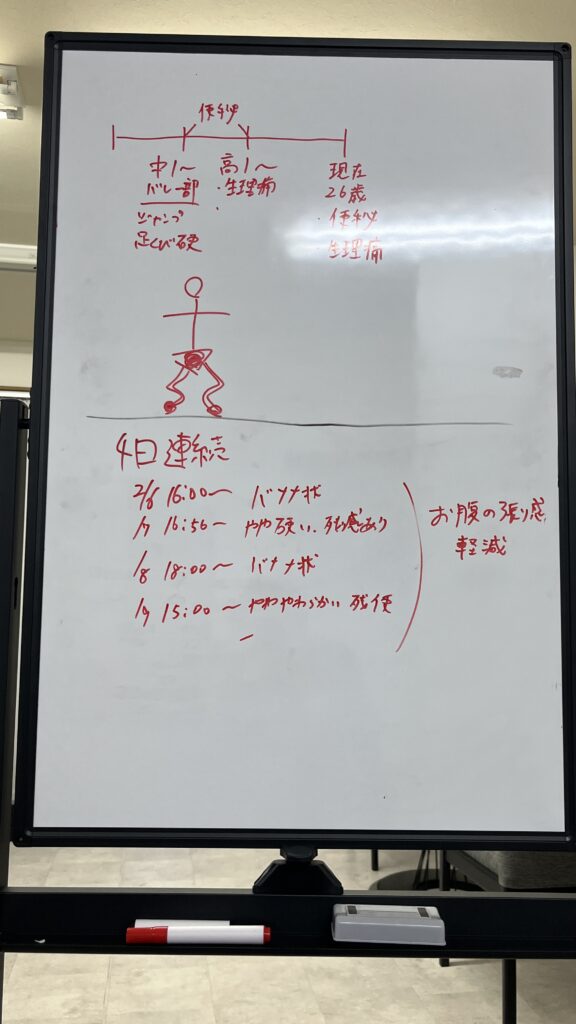 便秘
中1〜 高1〜 現在
バレー部 ・生理痛 26歳
ジャンプ ・ ・便秘
足くび硬 ・生理痛
4日連続
2/6 16:00〜 バナナ状
/7 16:56〜 やや硬い、残感あり
/8 18:00〜 バナナ状
/9 15:00〜 やわらかい 残便
お腹の張り感
軽減